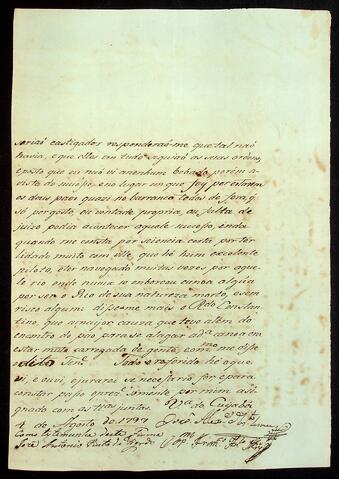 seriaõ castigados responderaõ-me que tal naõ
havia, e que elles em tudo seguiaõ as suas ordens,
eposto que eu naõ vi anenhum bebado, porem a
vista do sucesso, e no lugar em que foy por estarem
os deus paos quazi no barranco todos de fora, q̃
só por gosto, ou vontade propria, ou falta de
juizo podia acontecer aquele sucesso, ainda
quando me consta por sciencia certa por ter
lidado muito com elle que hé hum excelente
piloto, e ter navegado muitas vezes por aque
le rio onde nunca se embarcou canoa algũa
por ser o Rio de sua natureza morto, e sem
risco algum disseme mais o R.do Constan
tino, que amayor cauza que teve alem do
encontro do páo para se alagar ad.a canoa era
estar mito carregada de gente, como me disse
o dito Ten.e Todo o referido hé oque
vi, e ouvi, e jurarei se necessario for, e para
constar passo oprezente por mim assi
gnado com as testemunhas juntas. V.a do Cuyabá
4 de Agosto de 1797
Como testemunha deste
Jozé Antonio Pinto de